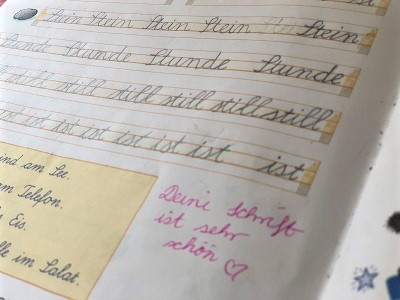 Stein Stein Stein Stein Stein Stein
Stunde Stunde Stunde Stunde
still still still still still still
ist ist ist ist ist ist ist
ind am See.
m Telefon.
s Eis.
lle im Salat.
Deine Schrift
ist sehr
schön ♡